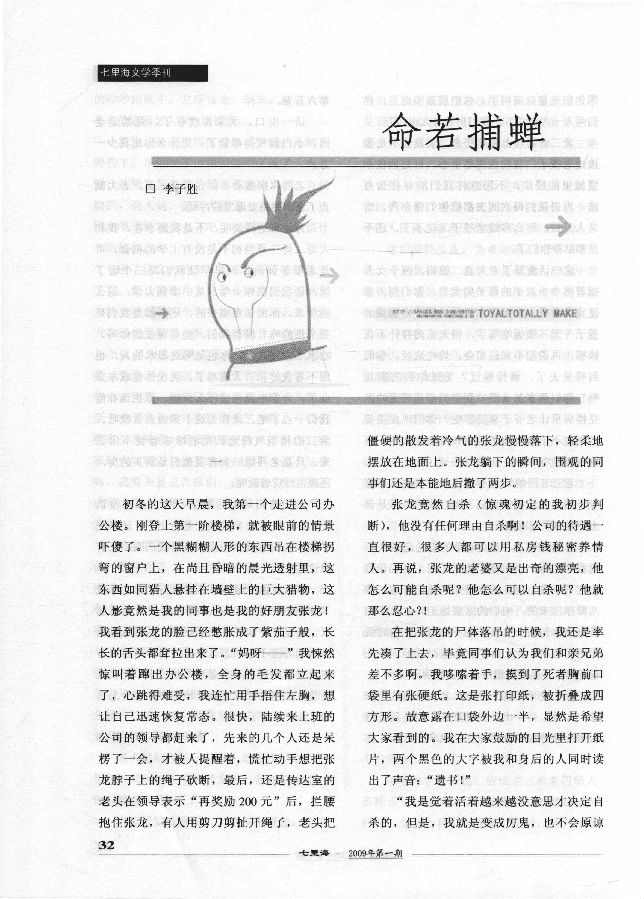 七里海文学季刊
命若捕蝉
□ 李子胜
TOYALTOTALLY MAKE
一
初冬的这天早晨，我第一个走进公司办
公楼。刚登上第一阶楼梯，就被眼前的情景
吓傻了。一个黑糊糊人形的东西吊在楼梯拐
弯的窗户上，在尚且昏暗的晨光透射里，这
东西如同猎人悬挂在墙壁上的巨大猎物，这
人影竟然是我的同事也是我的好朋友张龙！
我看到张龙的脸已经憋胀成了紫茄子般，长
长的舌头都耷拉出来了。“妈呀——”我悚然
惊叫着蹿出办公楼，全身的毛发都立起来
了，心跳得难受，我连忙用手捂住左胸，想
让自己迅速恢复常态。很快，陆续来上班的
公司的领导都赶来了，先来的几个人还是呆
楞了一会，才被人提醒着，慌忙动手想把张
龙脖子上的绳子砍断，最后，还是传达室的
老头在领导表示“再奖励 200 元”后，拦腰
抱住张龙，有人用剪刀剪扯开绳子，老头把
僵硬的散发着冷气的张龙慢慢落下，轻柔地
摆放在地面上。张龙躺下的瞬间，围观的同
事们还是本能地后撤了两步。
张龙竟然自杀（惊魂初定的我初步判
断），他没有任何理由自杀啊！公司的待遇一
直很好，很多人都可以用私房钱秘密养情
人。再说，张龙的老婆又是出奇的漂亮，他
怎么可能自杀呢？他怎么可以自杀呢？他就
那么忍心?!
在把张龙的尸体落吊的时候，我还是率
先凑了上去，毕竟同事们认为我们和亲兄弟
差不多啊。我哆嗦着手，摸到了死者胸前口
袋里有张硬纸。这是张打印纸，被折叠成四
方形。故意露在口袋外边一半，显然是希望
大家看到的。我在大家鼓励的目光里打开纸
片，两个黑色的大字被我和身后的人同时读
出了声音：“遗书!”
“我是觉着活着越来越没意思才决定自
杀的，但是，我就是变成厉鬼，也不会原谅
32
七里海 2009年第一期